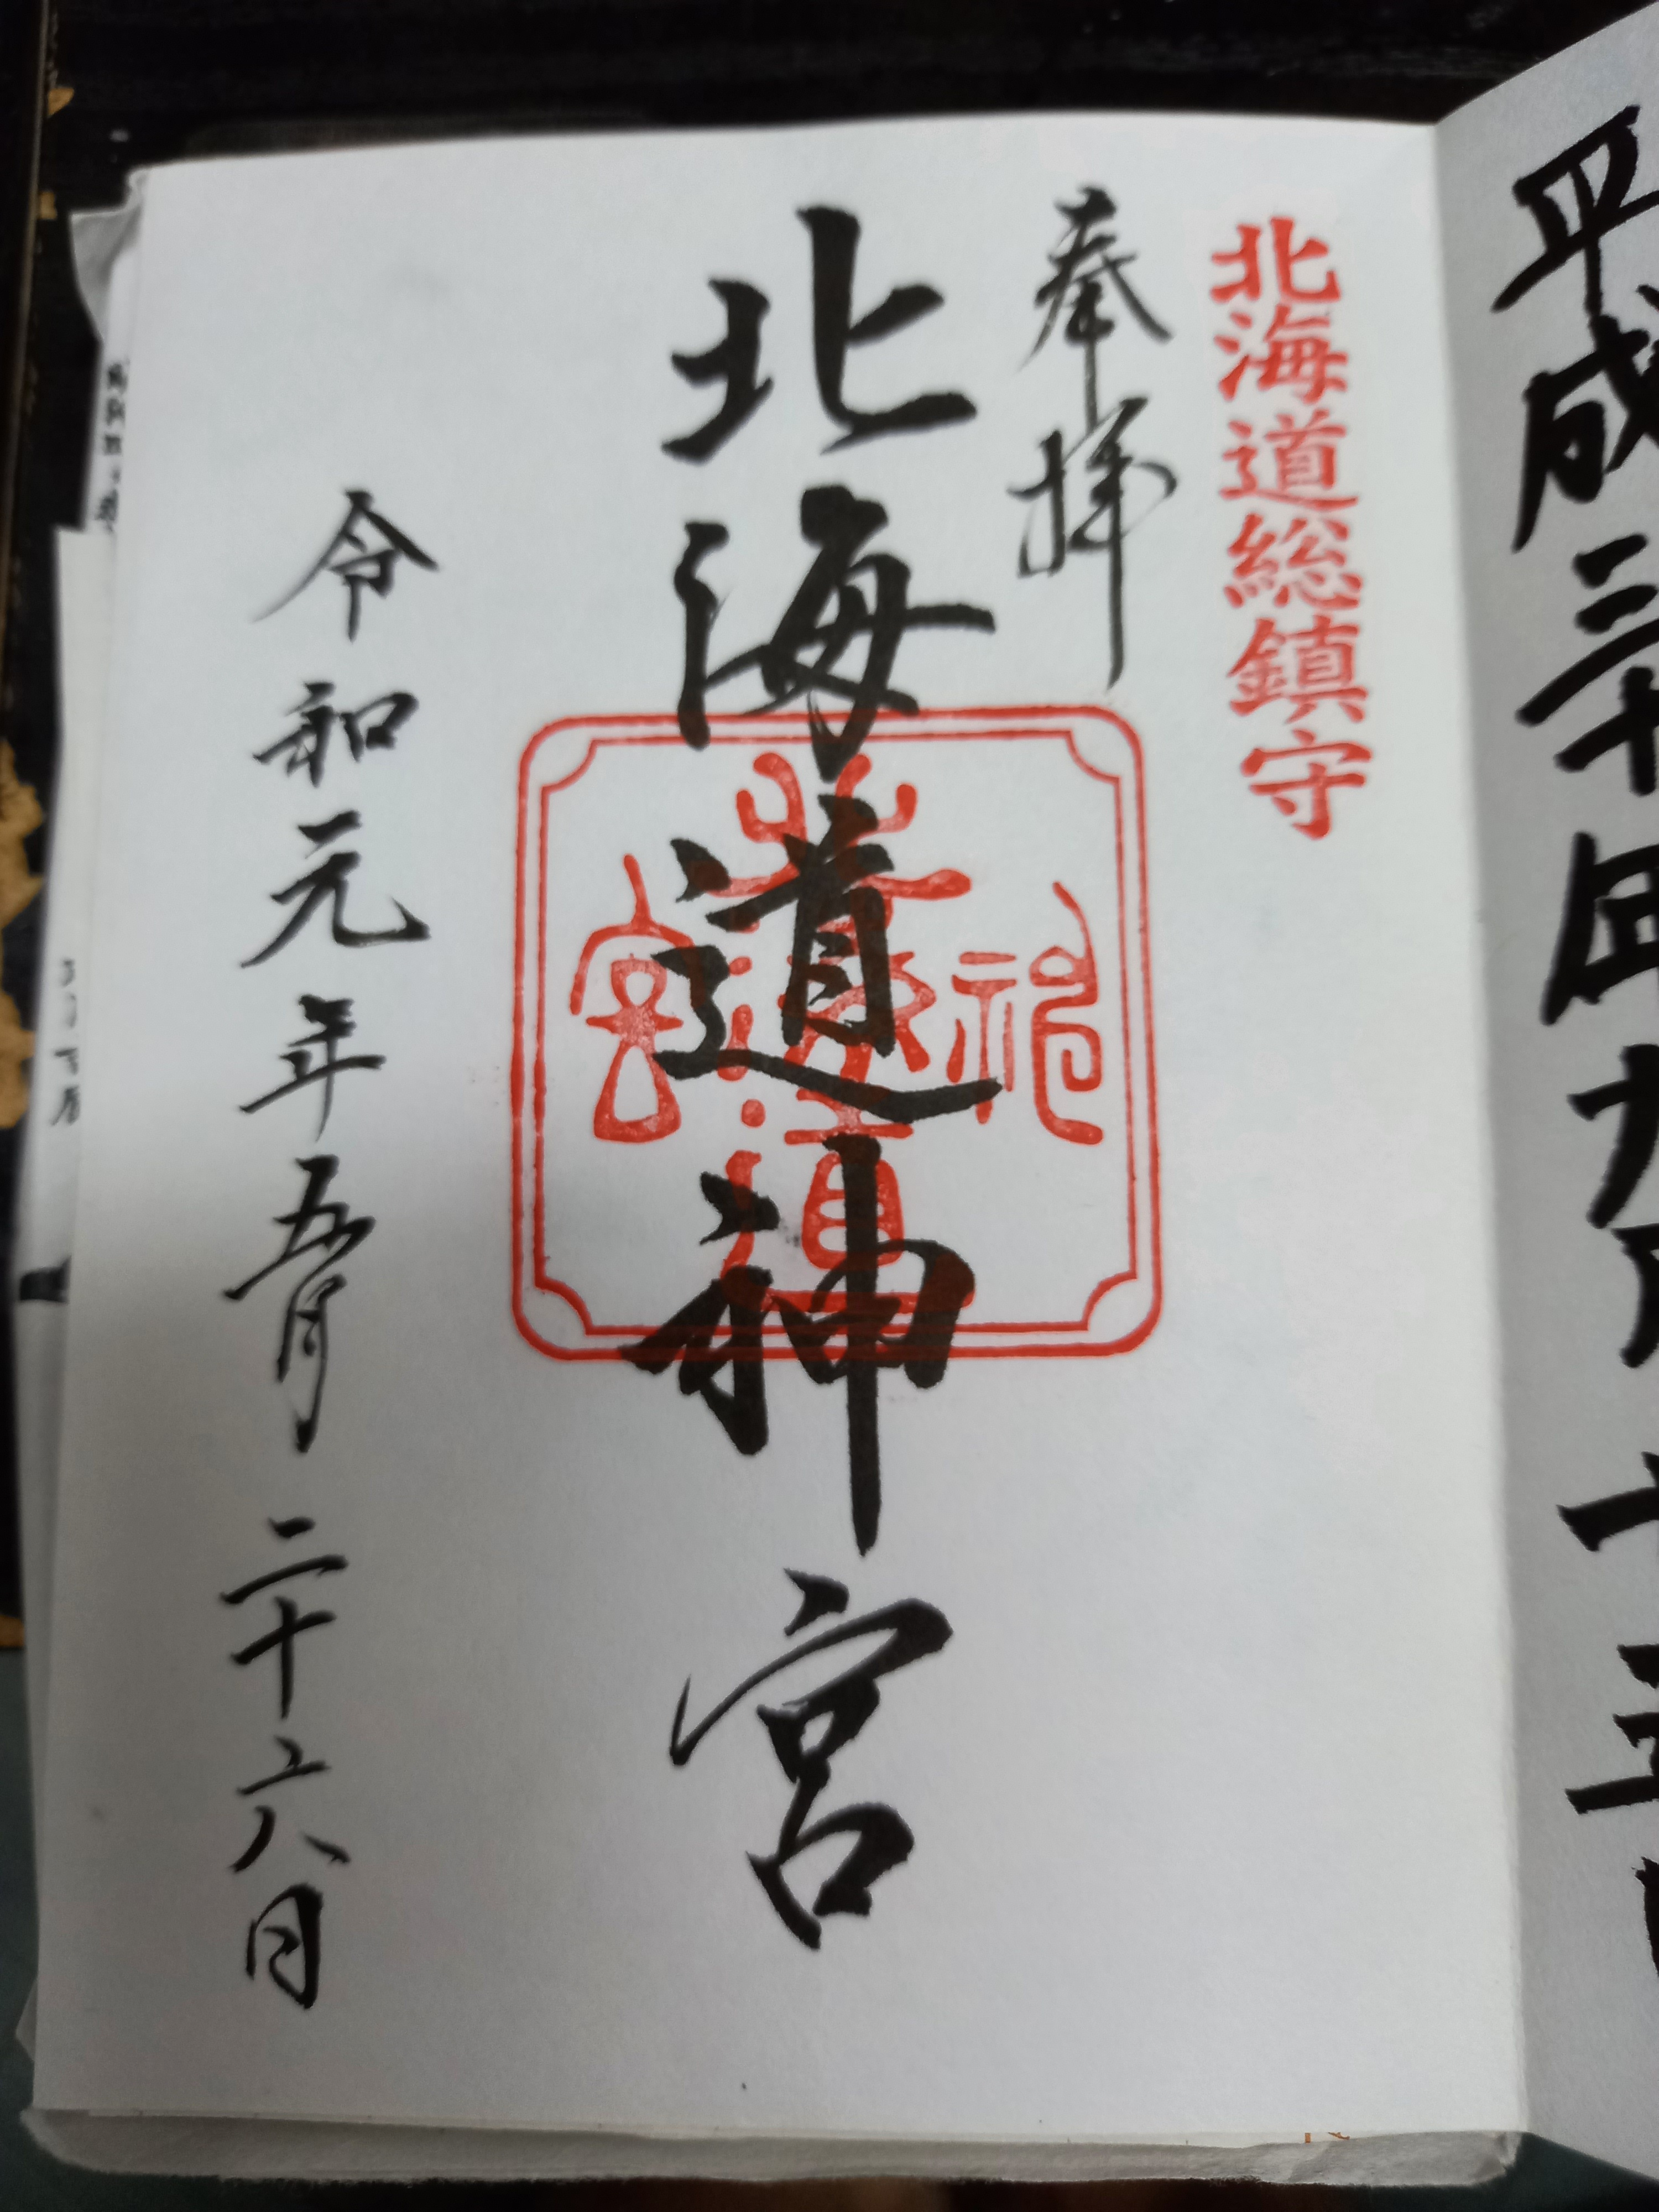 平成三十年九月十五日
北海道総鎮守
奉拝
北海道神宮
令和元年五月二十六日